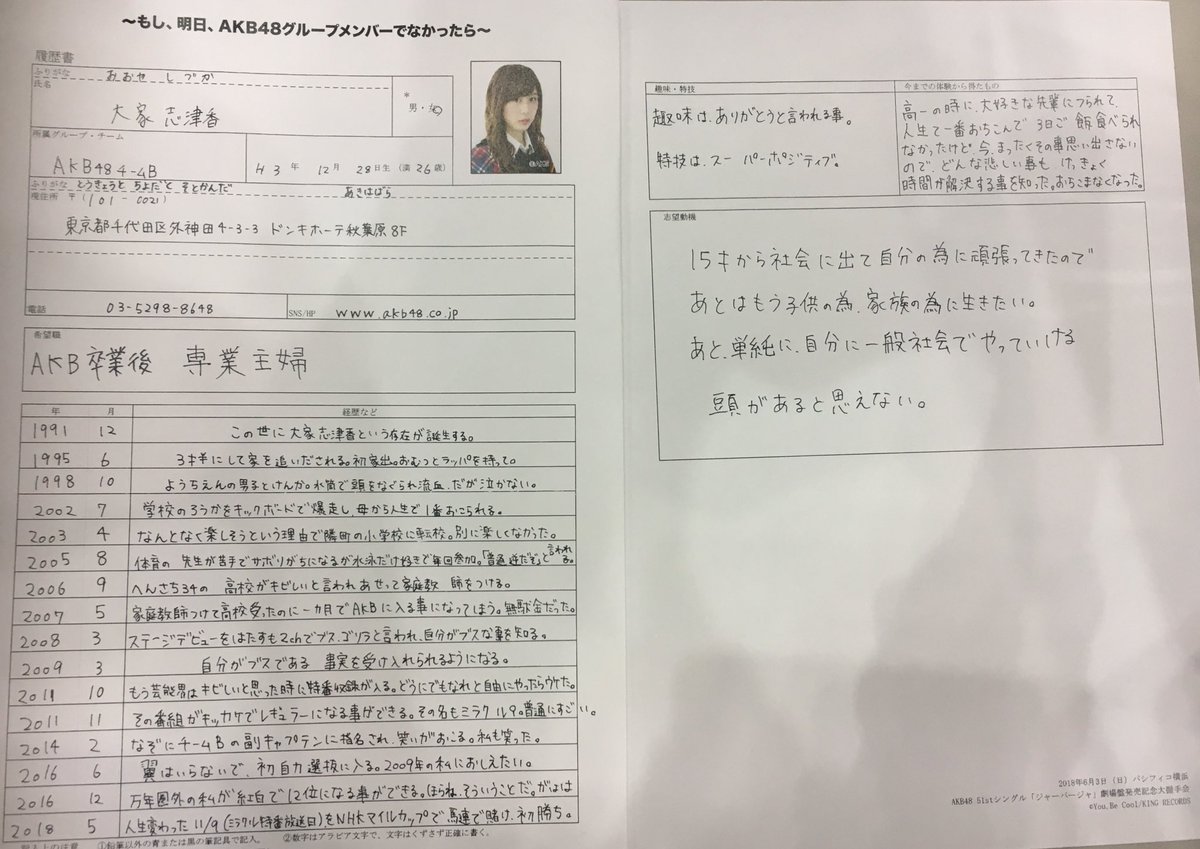 〜もし、明日、AKB48グループメンバーでなかったら〜
履歴書
ふりがな おおや しずか
氏名 大家 志津香
* 男・女
所属グループ・チーム
AKB48 チームB
H3年 12月 28日生 (満 26歳)
ふりがな とうきょうと ちよだく そとかんだ あきはばら
現住所 〒(101-0021)
東京都千代田区外神田4-3-3 ドンキホーテ秋葉原8F
電話 03-5298-8648
SNS/HP www.akb48.co.jp
希望職
AKB卒業後 専業主婦
年 月 経歴など
1991 12 この世に大家志津香という存在が誕生する。
1995 6 3才半にして家を追いだされる。初家出。おむつとラッパを持って。
1998 10 ようちえんの男子とけんか。水筒で頭をなぐられ流血。だが泣かない。
2002 7 学校のろうかをキックボードで爆走し、母から人生で1番おこられる。
2003 4 なんとなく楽しそうという理由で隣町の小学校に転校。別に楽しくなかった。
2005 8 体育の先生が苦手でサボりがちになるが水泳だけ好きで毎回参加。「普通逆だぞ」と言われる。
2006 9 へんさち34の高校がキビしいと言われあせって家庭教師をつける。
2007 5 家庭教師つけて高校受ったのに一カ月でAKBに入る事になってしまう。無駄金だった。
2008 3 ステージデビューをはたすも2chでブス、ゴリラと言われ、自分がブスな事を知る。
2009 3 自分がブスである 事実を受け入れられるようになる。
2011 10 もう芸能界はキビしいと思った時に特番収録が入る。どうにでもなれと自由にやったらウケた。
2011 11 その番組がキッカケでレギュラーになる事ができる。その名もミラクル9。普通にすごい。
2014 2 なぞにチームBの副キャプテンに指名され、笑いがおこる。私も笑った。
2016 6 翼はいらないで、初自力選抜に入る。2009年の私におしえたい。
2016 12 万年圏外の私が紅白で12位になる事ができる。ほらね、そういうことだ。がはは
2018 5 人生変わった11/9(ミラクル特番放送日)をNHKマイルカップで馬連で賭け、初勝ち。
記入上の注意 ①鉛筆以外の青または黒の筆記具で記入。 ②数字はアラビア文字で、文字はくずさず正確に書く。
趣味・特技
趣味は、ありがとうと言われる事。
特技は、スーパーポジティブ。
今までの体験から得たもの
高一の時に、大好きな先輩につられて、
人生で一番おちこんで3日ご飯食べられ
なかったけど、今、まったくその事思い出さない
ので、どんな悲しい事も、けっきょく
時間が解決する事を知った。おちこまなくなった。
志望動機
15才から社会に出て自分の為に頑張ってきたので
あとはもう子供の為、家族の為に生きたい。
あと、単純に、自分に一般社会でやっていける
頭があると思えない。
2018年6月3日(日)パシフィコ横浜
AKB48 51stシングル「ジャーバージャ」劇場盤発売記念大握手会
©You, Be Cool!/KING RECORDS